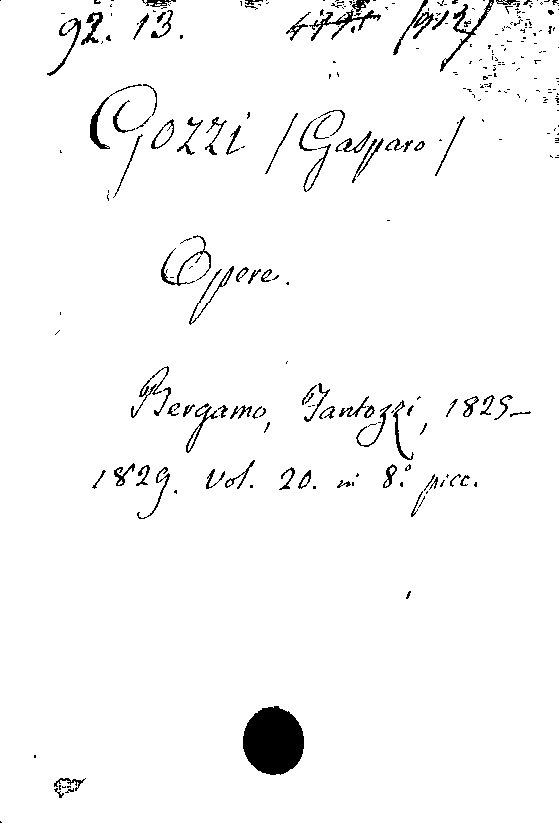 92. 13. (912)
Gozzi (Gasparo)
Opere.
Bergamo, Fantozzi, 1825-
1829. Vol. 20. in 8.° picc.